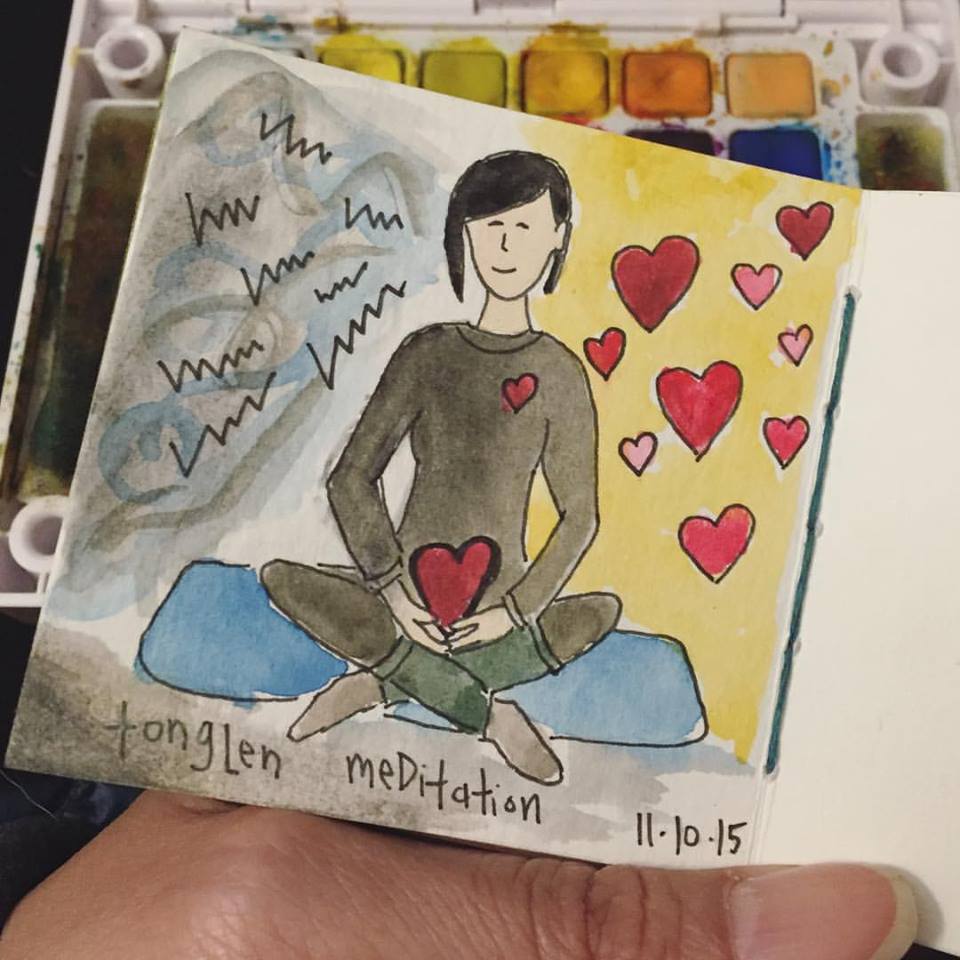 tongLen meDitation
11.10.15